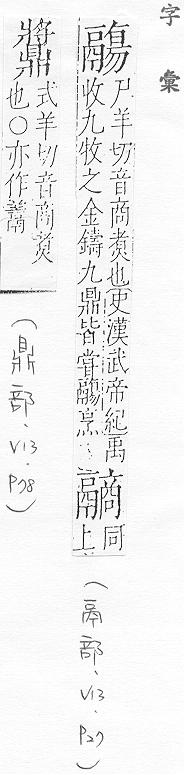 字彙
鬺 尸羊切音商煑也史漢武帝紀禹
收九牧之金鑄九鼎皆甞鬺烹
同
上
(鬲部、V13、P27)
䵼 式羊切音商煑
也○亦作
(鼎部、V13、P78)